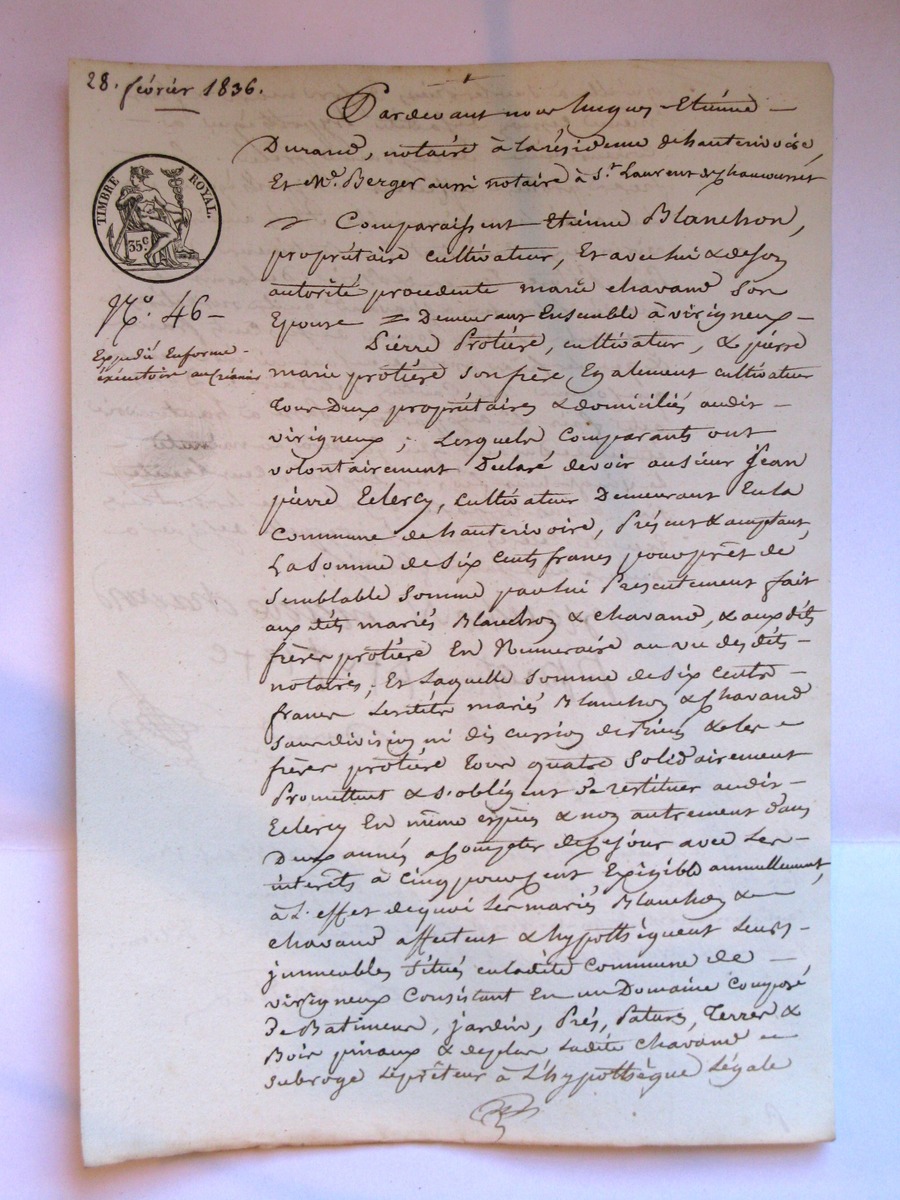 28. février 1836.
TIMBRE ROYAL.
35 c.
No. 46 -
Expédié Enforme
éxécutoire au créancier
Pardevant nous Jacques Etiénne -
Durand, notaire à la résidence de hauterivoire,
Et Me. Berger aussi notaire à St. Laurent de chamousset
Comparaissent Etiénne Blanchon,
propriétaire cultivateur, Et avec lui & de Son
autorité procedente marie chavand Son
Epouse = Demeurant Ensemble à virigneux -
Pierre Protière, cultivateur, & pierre
marie protière son frère Egalement cultivateur
Tous Deux propriétaires & domiciliés audit -
virigneux ; Lesquels Comparants ont
volontairement Déclaré devoir au sieur Jean
pierre Eclercy, cultivateur Demeurant En la
Commune de hauterivoire, Présent & acceptant,
La Somme de Six Cents francs pour prêt de
Semblable Somme par lui Présentement fait
aux dits mariés Blanchon & chavand, & aux dits
frères protière En Numeraire au vu des dits -
notaires ; Et Laquelle Somme de six cents
francs Lesdits mariés Blanchon & Chavand
sans division ni discussion de biens & les -
frères protière Tous quatre Solidairement
Promettent & s'obligent de restituer audit -
Eclercy En même espèces & non autrement dans
Deux années à Compter de ce jour avec Les -
interêts à Cinq pour cent Exigible annuellement,
à L'effet de quoi Les mariés Blanchon & -
chavand affectent & hypothèquent Leurs -
jmmeubles Situés en ladite Commune de -
virigneux Consistant En un Domaine Composé
de Batiments, jardin, Prés, Patures, Terres &
Bois pinaux & de plus Ladite Chavand -
subroge Le prêteur à L'hypothèque Légale